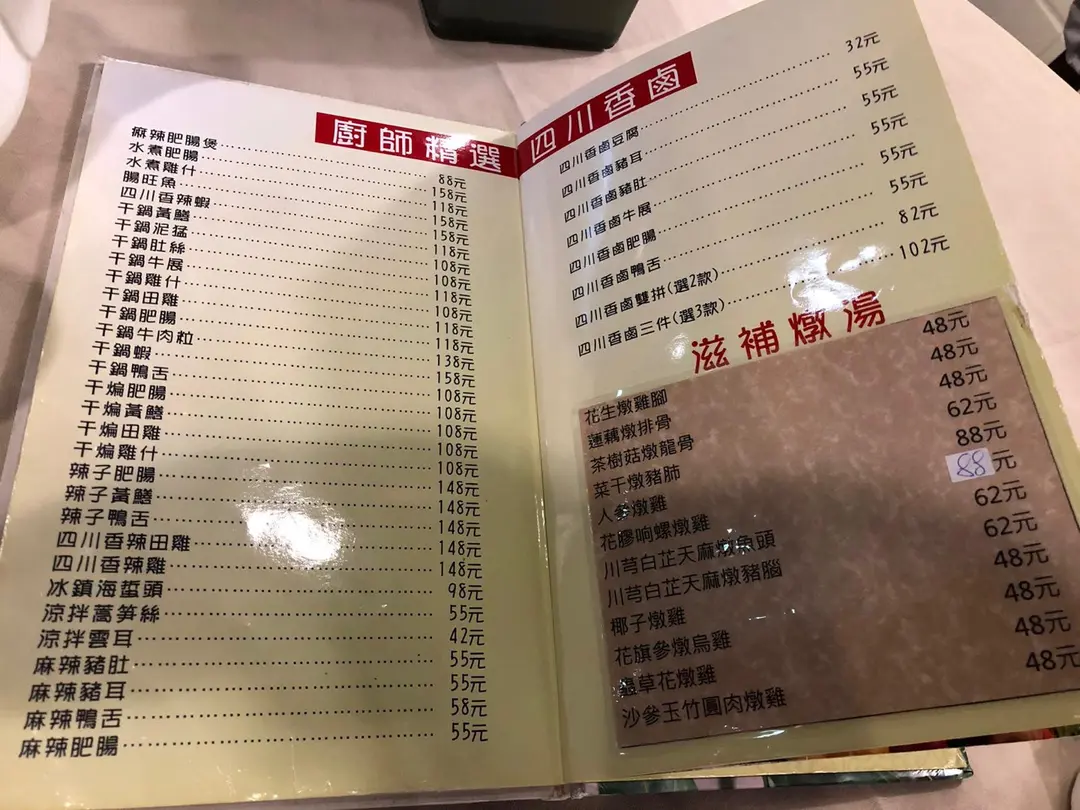 廚師精選
麻辣肥腸煲 88元
水煮肥腸 158元
水煮雞什 118元
腸旺魚 158元
四川香辣蝦 158元
干鍋黃鱔 118元
干鍋泥猛 108元
干鍋肚絲 108元
干鍋牛展 118元
干鍋雞什 108元
干鍋田雞 118元
干鍋肥腸 118元
干鍋牛肉粒 138元
干鍋蝦 158元
干鍋鴨舌 108元
干煸肥腸 108元
干煸黃鱔 108元
干煸田雞 108元
干煸雞什 108元
辣子肥腸 148元
辣子黃鱔 148元
辣子鴨舌 148元
四川香辣田雞 148元
四川香辣雞 148元
冰鎮海蜇頭 98元
涼拌萵筍絲 55元
涼拌雲耳 42元
麻辣豬肚 55元
麻辣豬耳 55元
麻辣鴨舌 58元
麻辣肥腸 55元
四川香鹵
四川香鹵豆腐 32元
四川香鹵豬耳 55元
四川香鹵豬肚 55元
四川香鹵牛展 55元
四川香鹵肥腸 55元
四川香鹵鴨舌 55元
四川香鹵雙拼(選2款) 82元
四川香鹵三件(選3款) 102元
滋補燉湯
花生燉雞腳 48元
蓮藕燉排骨 48元
茶樹菇燉龍骨 48元
菜干燉豬肺 62元
人參燉雞 88元
花膠响螺燉雞 88元
川芎白芷天麻燉魚頭 62元
川芎白芷天麻燉豬腦 62元
椰子燉雞 48元
花旗參燉烏雞 48元
蟲草花燉雞 48元
沙參玉竹圓肉燉雞 48元